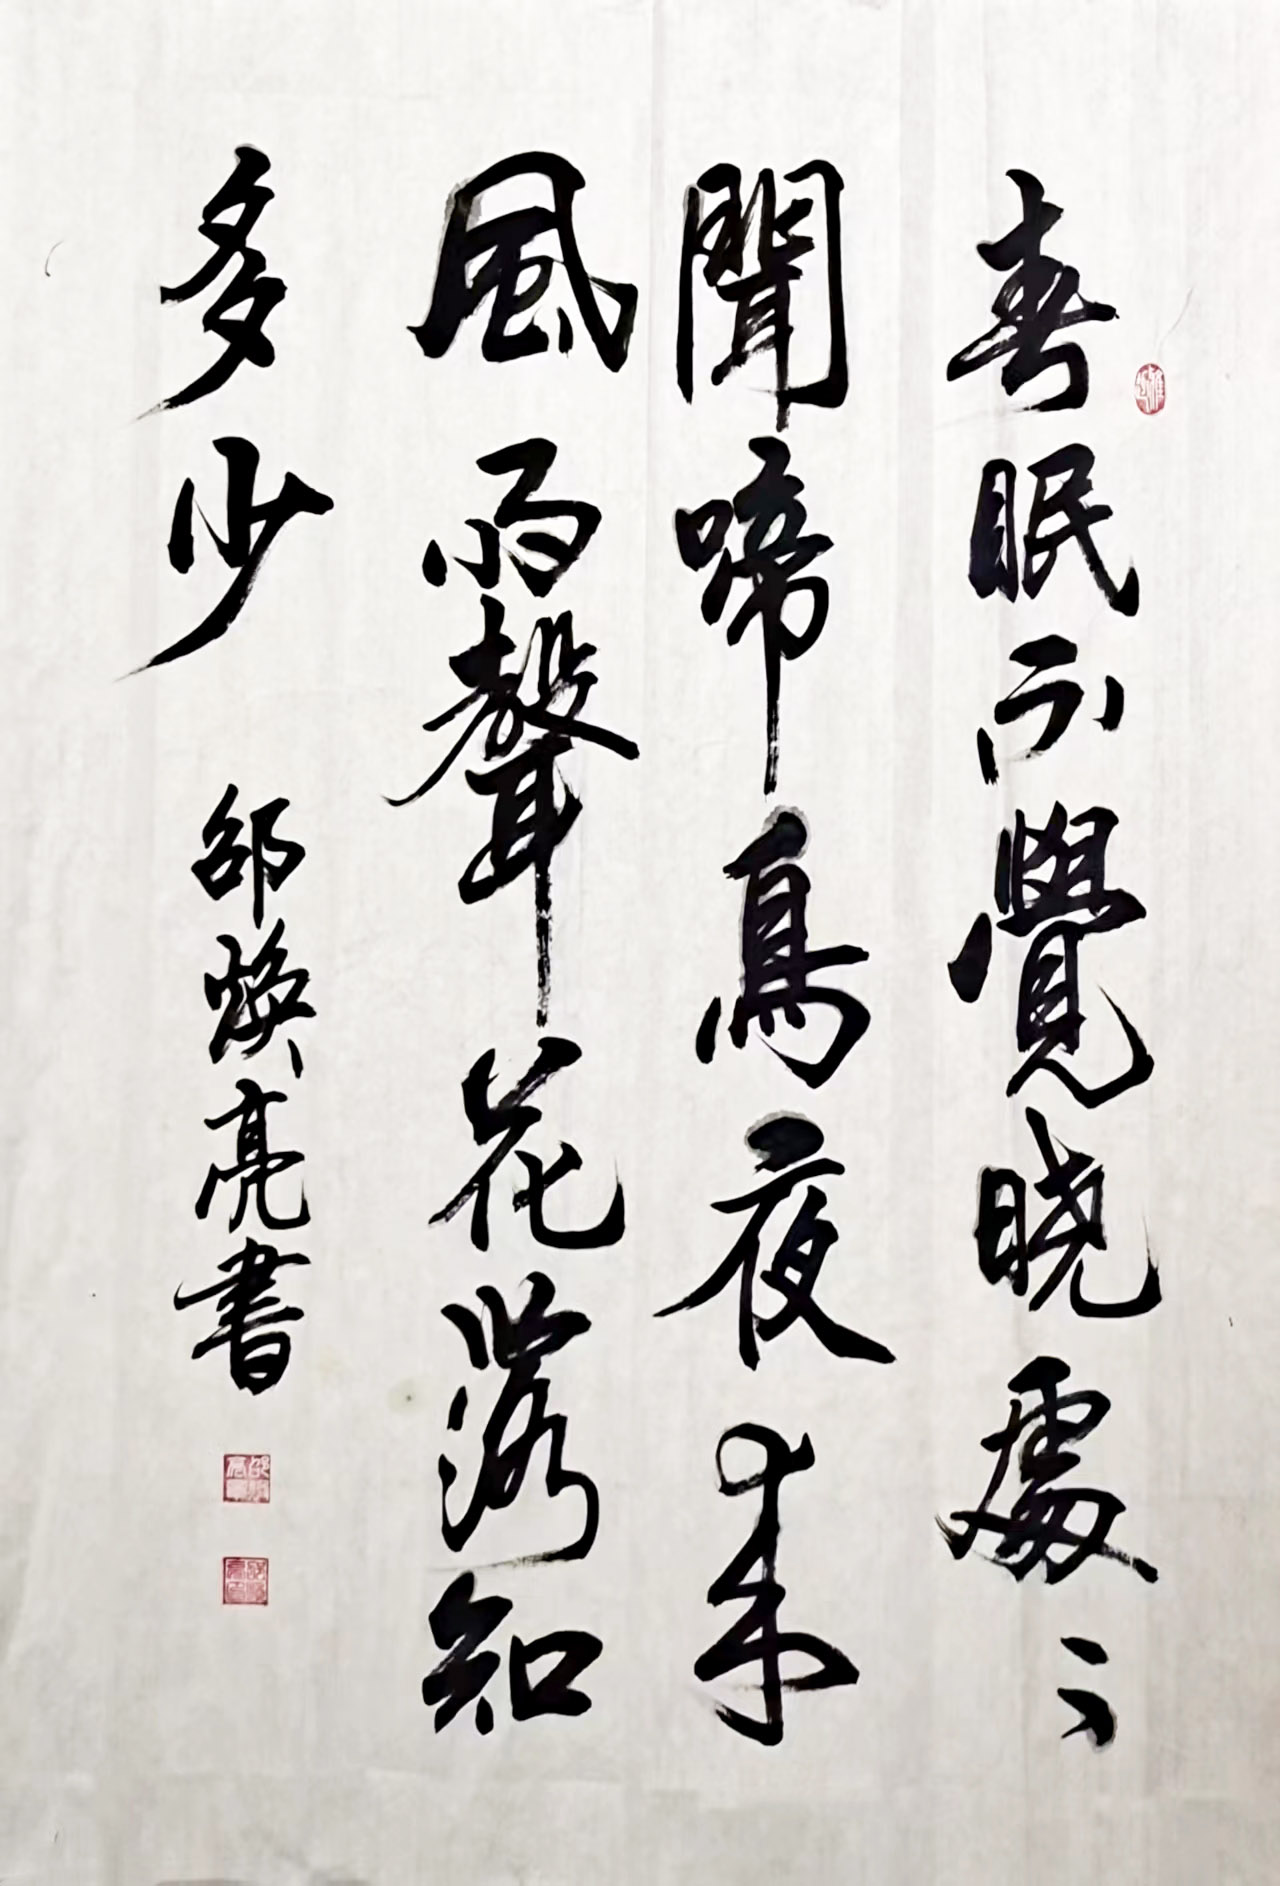 春眠不覺曉處々
聞啼鳥夜来
風雨聲花落知
多少
邵焕亮書